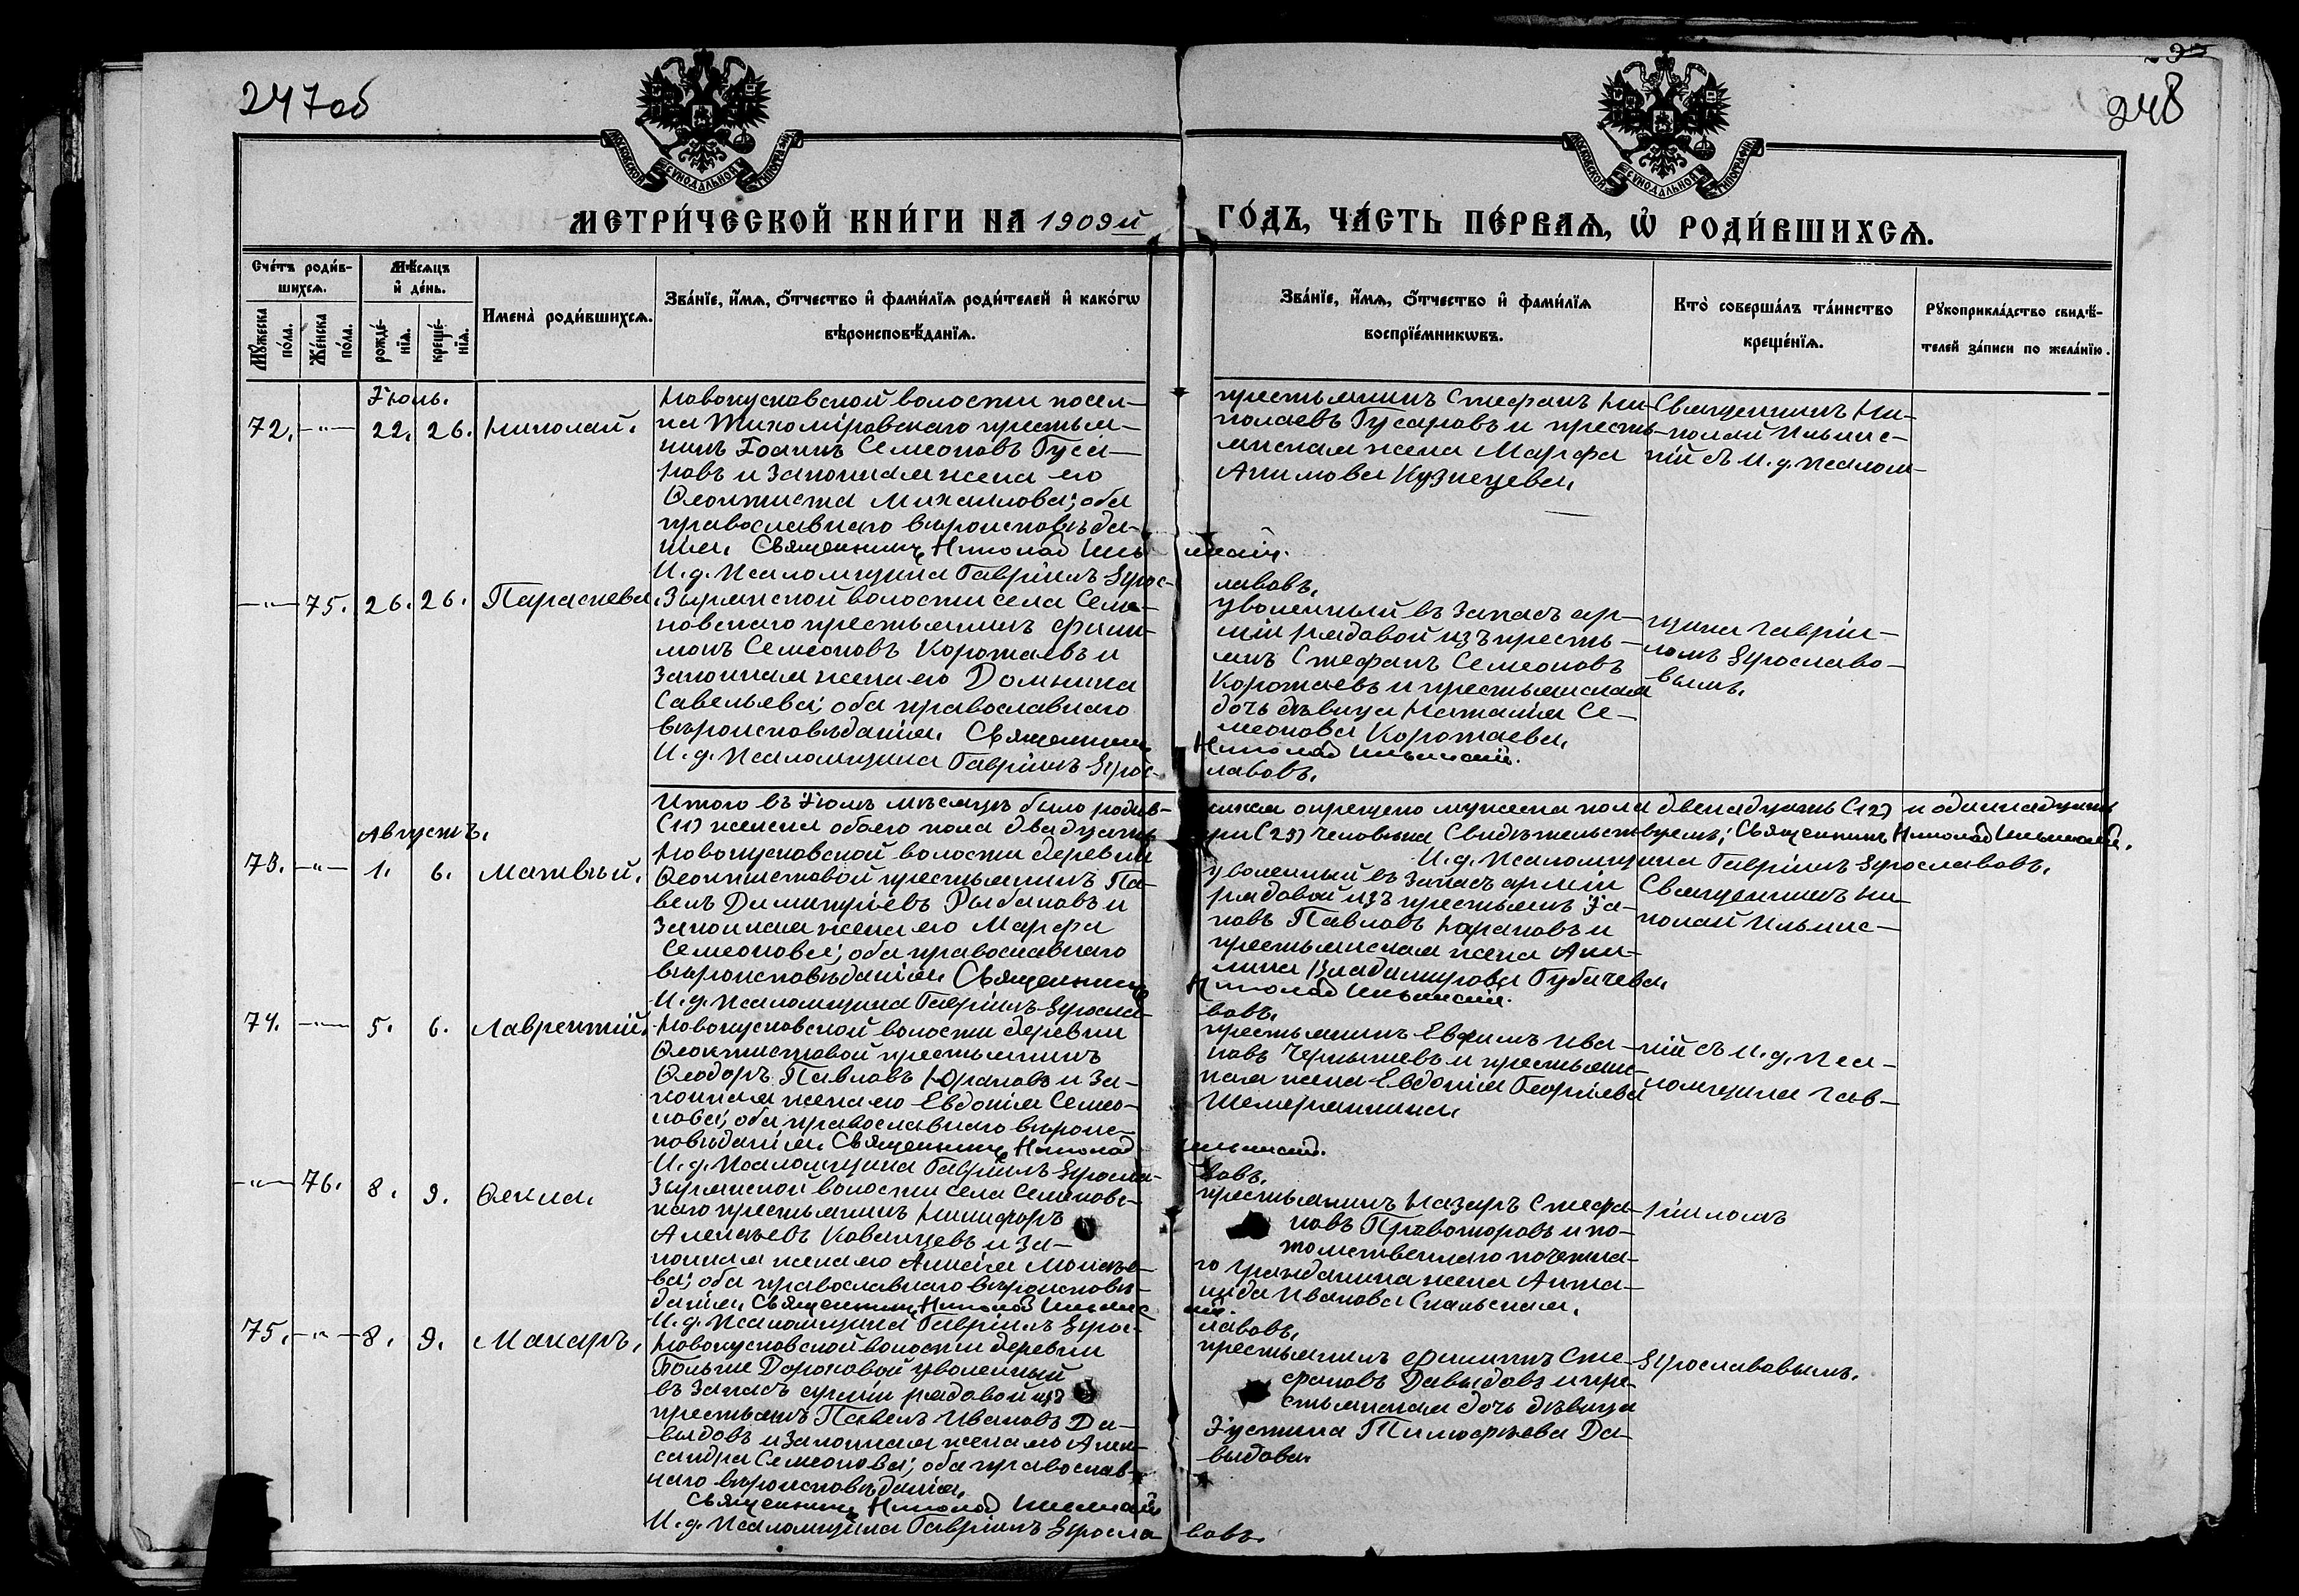 247об
248
МОСКОВСКОЙ СѴНОДАЛЬНОЙ ТИПОГРАФІИ
МОСКОВСКОЙ СѴНОДАЛЬНОЙ ТИПОГРАФІИ
МЕТРИ́ЧЕСКОЙ КНИ́ГИ НА 1909й ГО́ДЪ, ЧА́СТЬ ПЕ́РВАѦ, Ѽ РОДИ́ВШИХСѦ.
Сче́тъ роди́в-
шихсѧ.
Мѣ́сѧцъ
и҆ де́нь.
Мꙋ́жеска
по́ла.
Же́нска
по́ла.
рожде́-
нїѧ.
креще́-
нїѧ.
Имена̀ роди́вшихсѧ.
Зва́нїе, и҆́мѧ, ѻ҆́тчество и҆ фами́лїѧ роди́телей и҆ како́гѡ
вѣроисповѣ́данїѧ.
Зва́нїе, и҆́мѧ, ѻ҆́тчество и҆ фами́лїѧ
воспрїе́мникѡвъ.
Кто̀ соверша́лъ та́инство
креще́нїѧ.
Рꙋкоприкла́дство свидѣ́-
телей за́писи по жела́нїю.
Іюль.
72. -"- 22. 26. Николай.
Новокусковской волости посел-
ка Тихоміровскаго крестья-
нинъ Іоаннъ Семеоновъ Гуса-
ровъ и законная жена его
Ѳеоктиста Михаилова; оба
православнаго вѣроисповѣда-
нія. Священникъ Николай Ильинскій.
И. д. Псаломщика Гавріилъ Ярославовъ.
крестьянинъ Стефанъ Ни-
колаевъ Гусаровъ и кресть-
янская жена Марфа
Акимова Кузнецева.
Священникъ Ни-
колай Ильинс-
кій съ И. д. псалом-
-"- 75. 26. 26. Параскева.
Зырянской волости села Семе-
новскаго крестьянинъ Фили-
монъ Семеоновъ Коротаевъ и
законная жена его Домника
Савельева; оба православнаго
вѣроисповѣданія. Священникъ Николай Ильинскій.
И. д. Псаломщика Гавріилъ Ярославовъ.
уволенный въ запасъ ар-
міи рядовой изъ кресть-
янъ Стефанъ Семеоновъ
Коротаевъ и крестьянская
дочь дѣвица Наталія Се-
меонова Коротаева.
щика Гавріи-
ломъ Ярославо-
вымъ.
Итого въ Іюлѣ мѣсяцѣ было родив-шихся окрещено мужеска пола двенадцать (12) и одиннадцать
(11) женска обоего пола двадцать три (23) человѣка Свидѣтельствуемъ; Священникъ Николай Ильинскій.
И. д. Псаломщика Гавріилъ Ярославовъ.
Августъ.
73. -"- 1. 6. Матвѣй.
Новокусковской волости деревни
Ѳеоктистовой крестьянинъ Па-
велъ Димитріевъ Рыбаковъ и
законная жена его Марфа
Семеонова; оба православнаго
вѣроисповѣданія. Священникъ Николай Ильинскій.
И. д. Псаломщика Гавріилъ Ярославовъ.
уволенный въ запасъ арміи
рядовой изъ крестьянъ Іа-
ковъ Павловъ Юрановъ и
крестьянская жена Аки-
лина Владимирова Губачева.
Священникъ Ни-
колай Ильинс-
74. -"- 5. 6. Лаврентій.
Новокусковской волости деревни
Ѳеоктистовой крестьянинъ
Ѳеодоръ Павловъ Юрановъ и за-
конная жена его Евдокія Семео-
нова; оба православнаго вѣроис-
повѣданія. Священникъ Николай Ильинскій.
И. д. Псаломщика Гавріилъ Ярославовъ.
крестьянинъ Евфимъ Ива-
новъ Чернышевъ и крестьянс-
кая жена Евдокія Георгіева
Шемеранкина.
кій съ И. д. Пса-
ломщика Гав-
-"- 76. 8. 9. Ѳекла.
Зырянской волости села Семеновс-
каго крестьянинъ Никифоръ
Алексѣевъ Кованцевъ и за-
конная жена его Анисія Моисѣе-
ва; оба православнаго вѣроисповѣ-
данія. Священникъ Николай Ильинскій.
И. д. Псаломщика Гавріилъ Ярославовъ.
крестьянинъ Назаръ Стефа-
новъ Правоторовъ и по-
томственнаго почетна-
го гражданина жена Анта-
нида Иванова Скальская.
ріиломъ
75. -"- 8. 9. Макаръ.
Новокусковской волости деревни
Больше Дороховой уволенный
въ запасъ арміи рядовой изъ
крестьянъ Павелъ Ивановъ Да-
выдовъ и законная жена его Алек-
сандра Семеонова; оба православ-
наго вѣроисповѣданія.
Священникъ Николай Ильинскій
И. д. Псаломщика Гавріилъ Ярославовъ.
крестьянинъ Филиппъ Сте-
фановъ Давыдовъ и кре-
стьянская дочь дѣвица
Іустина Тимофеева Да-
выдова.
Ярославовымъ.